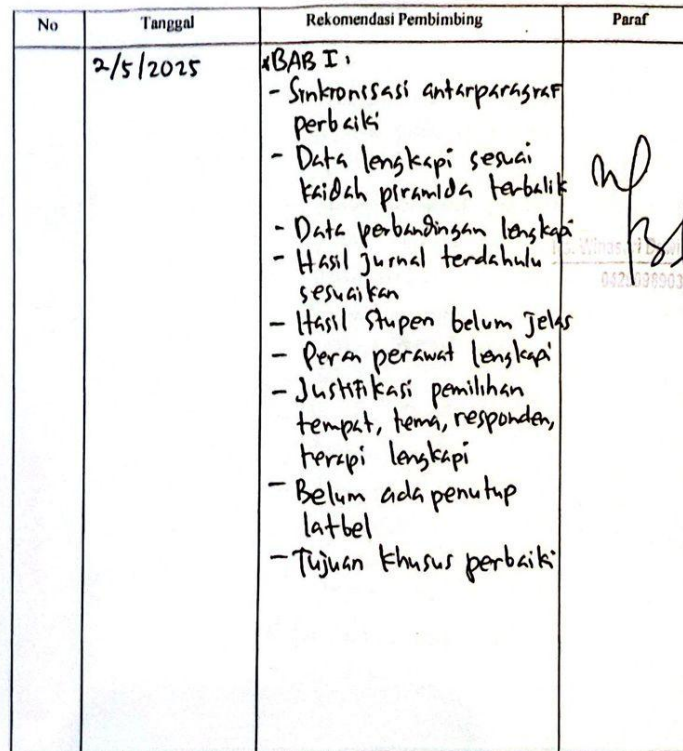 No Tanggal Rekomendasi Pembimbing Paraf
2/5/2025 *BAB I:
- Sinkronisasi antarparagraf
perbaiki
- Data lengkapi sesuai
kaidah piramida terbalik
- Data perbandingan lengkapi
- Hasil jurnal terdahulu
sesuaikan
- Hasil stupen belum jelas
- Peran perawat lengkapi
- Justifikasi pemilihan
tempat, tema, responden,
terapi lengkapi
- Belum ada penutup
latbel
- Tujuan khusus perbaiki